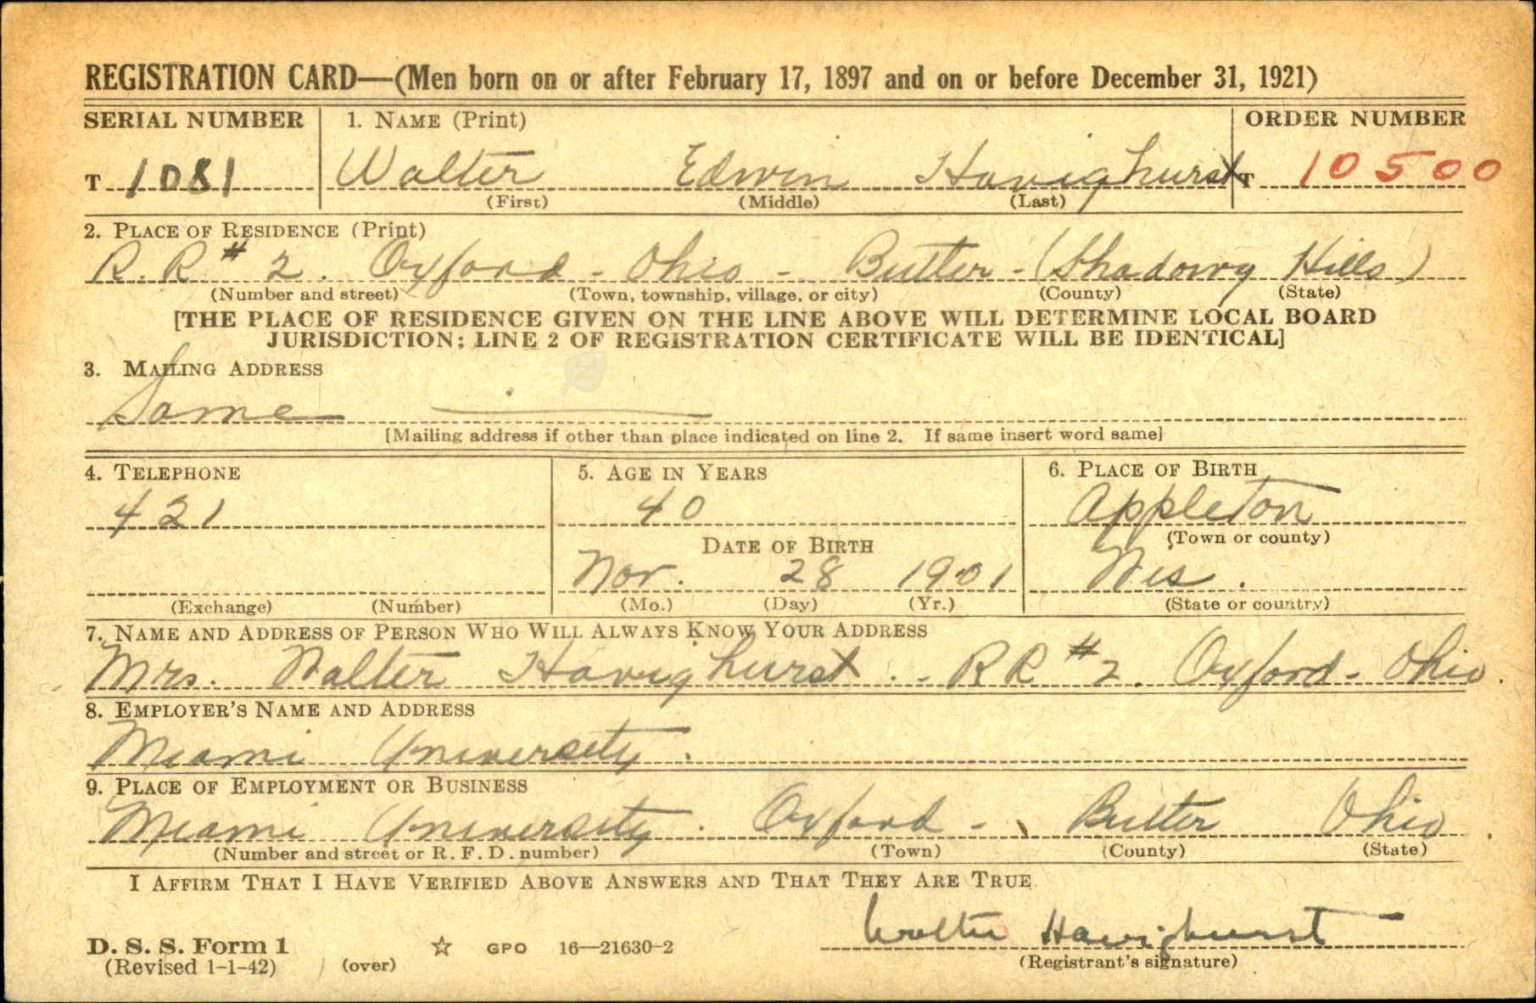 REGISTRATION CARD—(Men born on or after February 17, 1897 and on or before December 31, 1921)
SERIAL NUMBER 1. NAME (Print) ORDER NUMBER
T 1081 Walter Edwin Havighurst T 10500
(First) (Middle) (Last)
2. PLACE OF RESIDENCE (Print)
R. R # 2. Oxford - Ohio - Butler - (Shadowy Hills)
(Number and street) (Town, township, village, or city) (County) (State)
[THE PLACE OF RESIDENCE GIVEN ON THE LINE ABOVE WILL DETERMINE LOCAL BOARD
JURISDICTION; LINE 2 OF REGISTRATION CERTIFICATE WILL BE IDENTICAL]
3. MAILING ADDRESS
Same
[Mailing address if other than place indicated on line 2. If same insert word same]
4. TELEPHONE 5. AGE IN YEARS 6. PLACE OF BIRTH
421 40 Appleton
DATE OF BIRTH (Town or county)
Nov. 28 1901 Wis.
(Exchange) (Number) (Mo.) (Day) (Yr.) (State or country)
7. NAME AND ADDRESS OF PERSON WHO WILL ALWAYS KNOW YOUR ADDRESS
Mrs. Walter Havighurst. - RR # 2. Oxford - Ohio.
8. EMPLOYER'S NAME AND ADDRESS
Miami University.
9. PLACE OF EMPLOYMENT OR BUSINESS
Miami University. Oxford - Butler Ohio.
(Number and street or R. F. D. number) (Town) (County) (State)
I AFFIRM THAT I HAVE VERIFIED ABOVE ANSWERS AND THAT THEY ARE TRUE.
Walter Havighurst
D. S. S. Form 1 ☆ GPO 16—21630-2
(Revised 1-1-42) (over) (Registrant's signature)